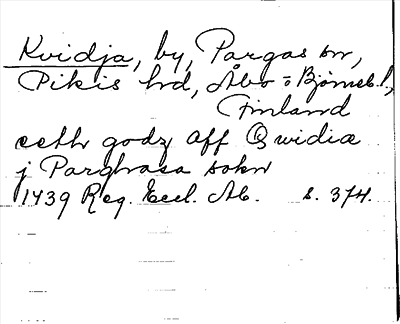 Kvidja, by, Pargas sn,
Pikis hd, Åbo-Björneb.l.,
Finland
eeth godz aff Qwidia
j Parghasa sokn
1439 Reg. Eccl. Ab. s. 374.